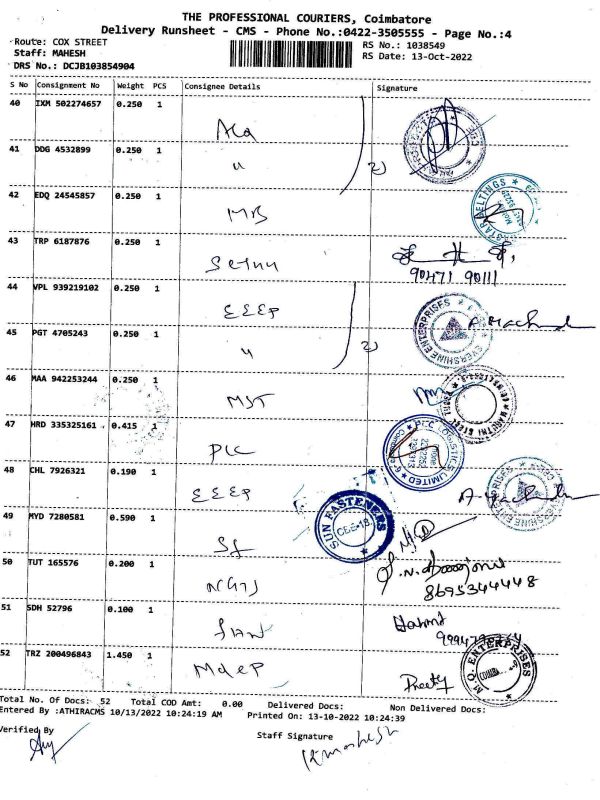 THE PROFESSIONAL COURIERS, Coimbatore
Delivery Runsheet - CMS - Phone No.:0422-3505555 - Page No.:4
Route: COX STREET
Staff: MAHESH
DRS No.: DCJB103854904
RS No.: 1038549
RS Date: 13-Oct-2022
S No Consignment No Weight PCS Consignee Details Signature
40 IXM 502274657 0.250 1
41 DDG 4532899 0.250 1 " 2)
42 EDQ 24545857 0.250 1 MB
43 TRP 6187876 0.250 1
90471 90111
44 VPL 939219102 0.250 1 EEEP
EVERSHINE ENTERPRISES
45 PGT 4705243 0.250 1 " 2)
46 MAA 942253244 0.250 1 MST
47 HRD 335325161 0.415 1 PLC
48 CHL 7926321 0.190 1 EEEP
49 MYD 7280581 0.590 1 SF
SUN FASTENERS
CBE-18
50 TUT 165576 0.200 1
8695344448
51 SDH 52796 0.100 1
52 TRZ 200496843 1.450 1 MdeP
Preethy
M.Q. ENTERPRISES
Total No. Of Docs: 52 Total COD Amt: 0.00 Delivered Docs: Non Delivered Docs:
Entered By :ATHIRACMS 10/13/2022 10:24:19 AM Printed On: 13-10-2022 10:24:39
Verified By
Staff Signature